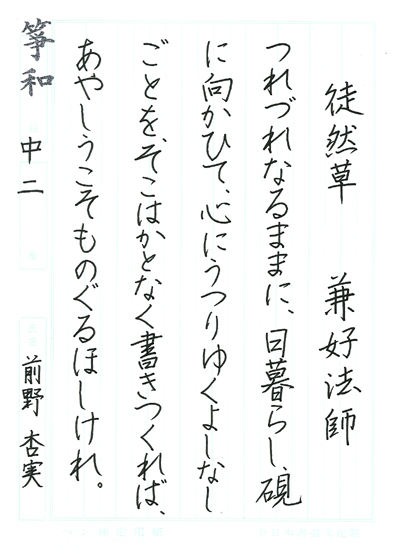 徒然草　兼好法師
つれづれなるままに、日暮らし、硯
に向かひて、心にうつりゆくよしなし
ごとを、そこはかとなく書きつくれば、
あやしうこそものぐるほしけれ。
筝和　中二　前野 杏実